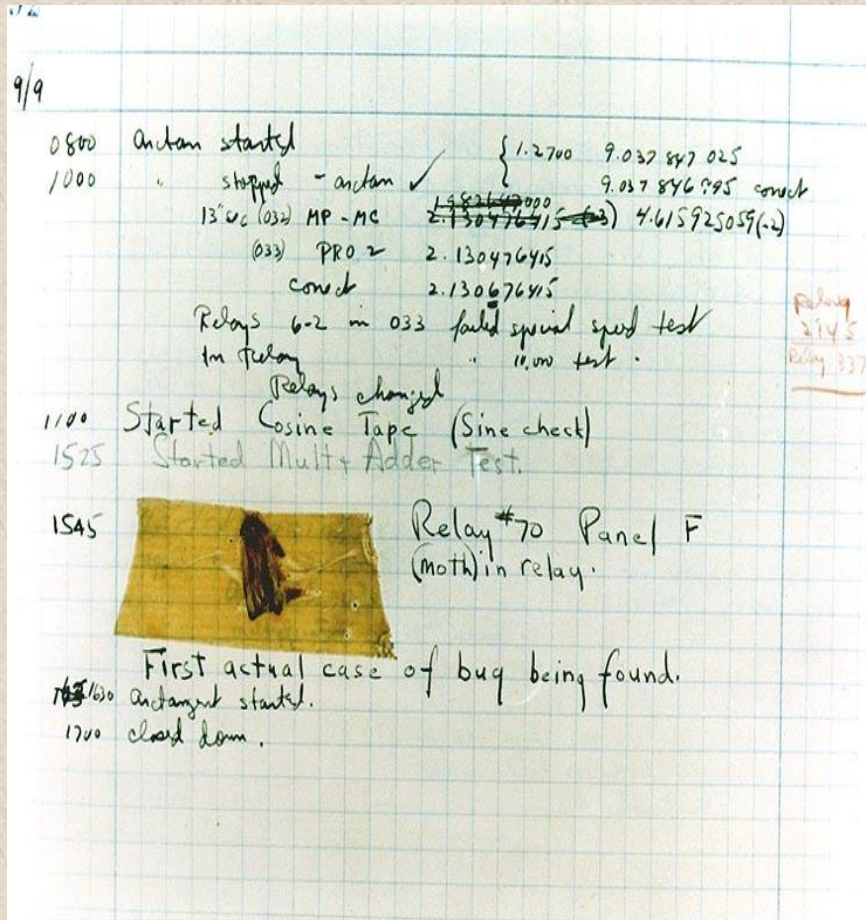 9/9
0800 Antan started { 1.2700 9.037 847 025
1000 " stopped - antan ✓ 9.037 846 995 conect
13"uc (032) MP-MC 2.130476415 (-3) 4.615925059(-2)
(033) PRO 2 2.130476415
conect 2.130676415
Relays 6-2 in 033 failed special speed test
In Relay " 10,000 test.
Relay
2145
Relay 337
Relays changed
1100 Started Cosine Tape (Sine check)
1525 Started Mult+Adder Test.
1545 Relay #70 Panel F
(moth) in relay.
First actual case of bug being found.
1630 antangent started.
1700 closed down.